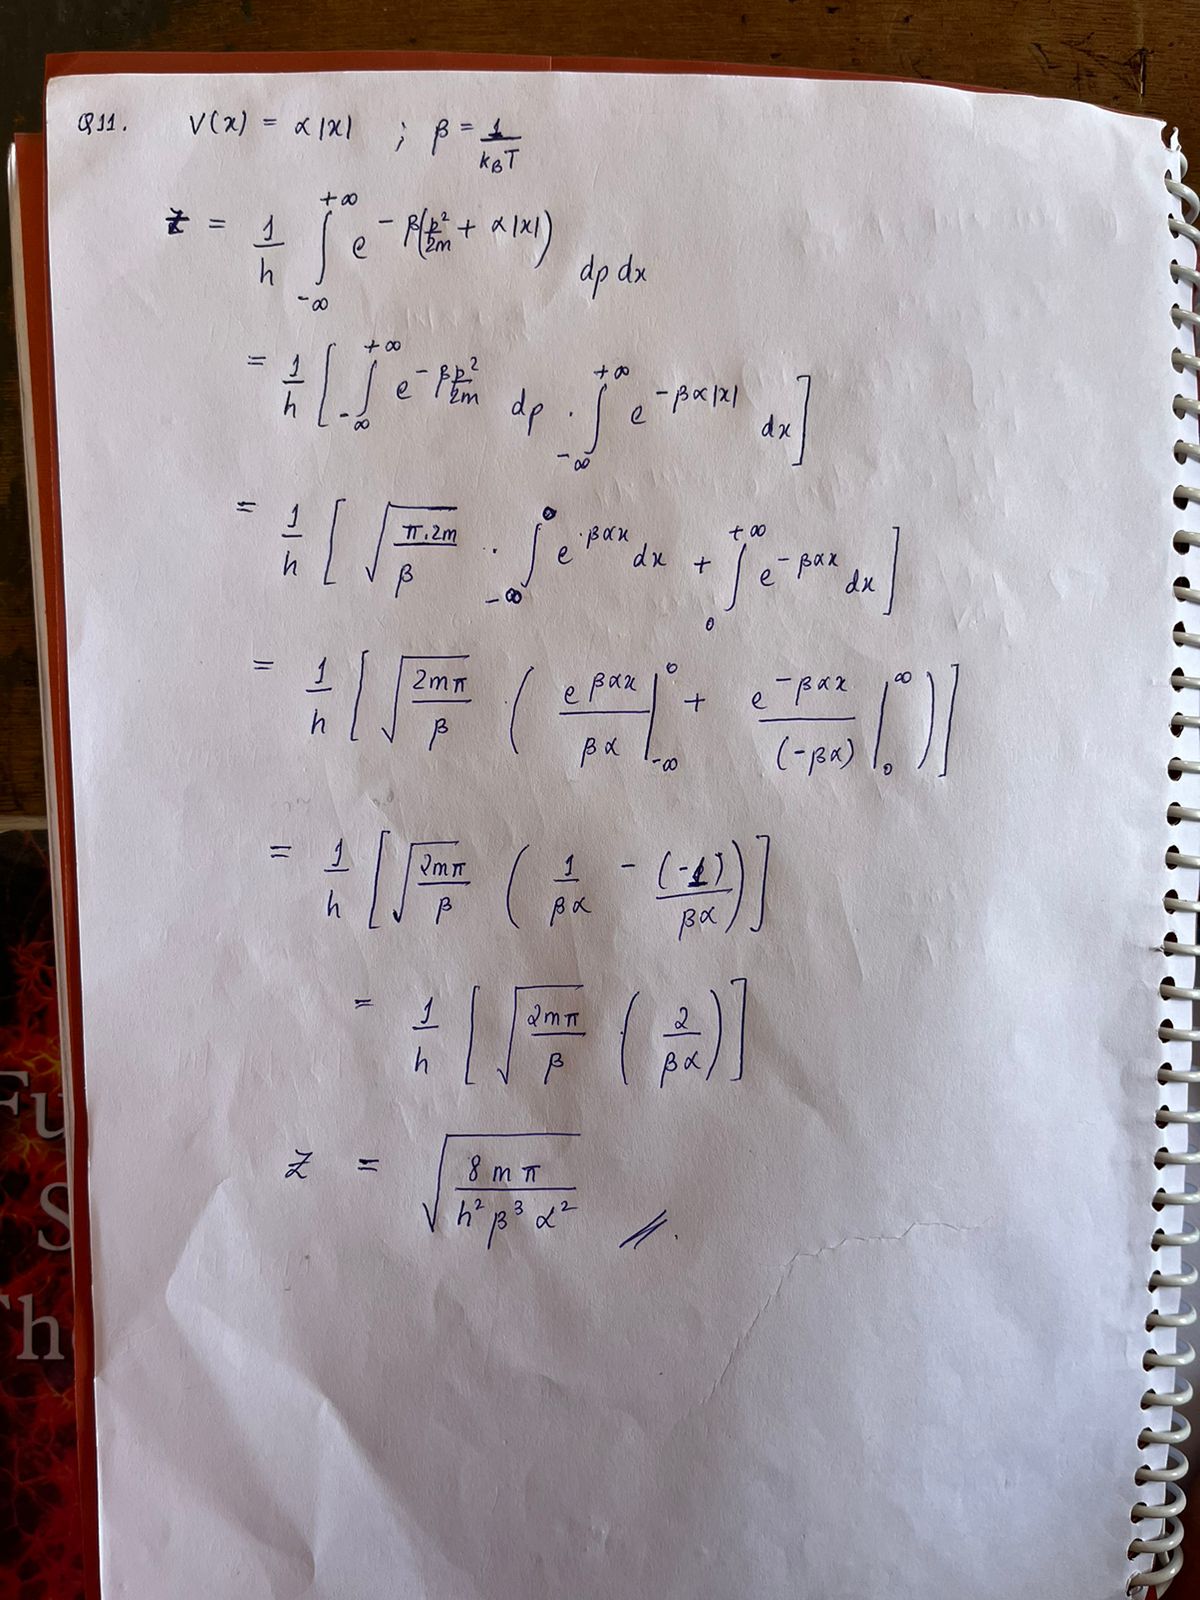 Q11. V(x) = α|x| ; β = 1/(k_B T)
Z = 1/h ∫_{-∞}^{+∞} e^{-β(p²/2m + α|x|)} dp dx
= 1/h [ ∫_{-∞}^{+∞} e^{-βp²/2m} dp · ∫_{-∞}^{+∞} e^{-βα|x|} dx ]
= 1/h [ √(π.2m/β) · ∫_{-∞}^{0} e^{βαx} dx + ∫_{0}^{+∞} e^{-βαx} dx ]
= 1/h [ √(2mπ/β) · ( e^{βαx}/βα |_{-∞}^{0} + e^{-βαx}/(-βα) |_{0}^{∞} ) ]
= 1/h [ √(2mπ/β) ( 1/βα - (-1)/βα ) ]
= 1/h [ √(2mπ/β) ( 2/βα ) ]
Z = √(8mπ/h²β³α²) //.
Fu
S
Th